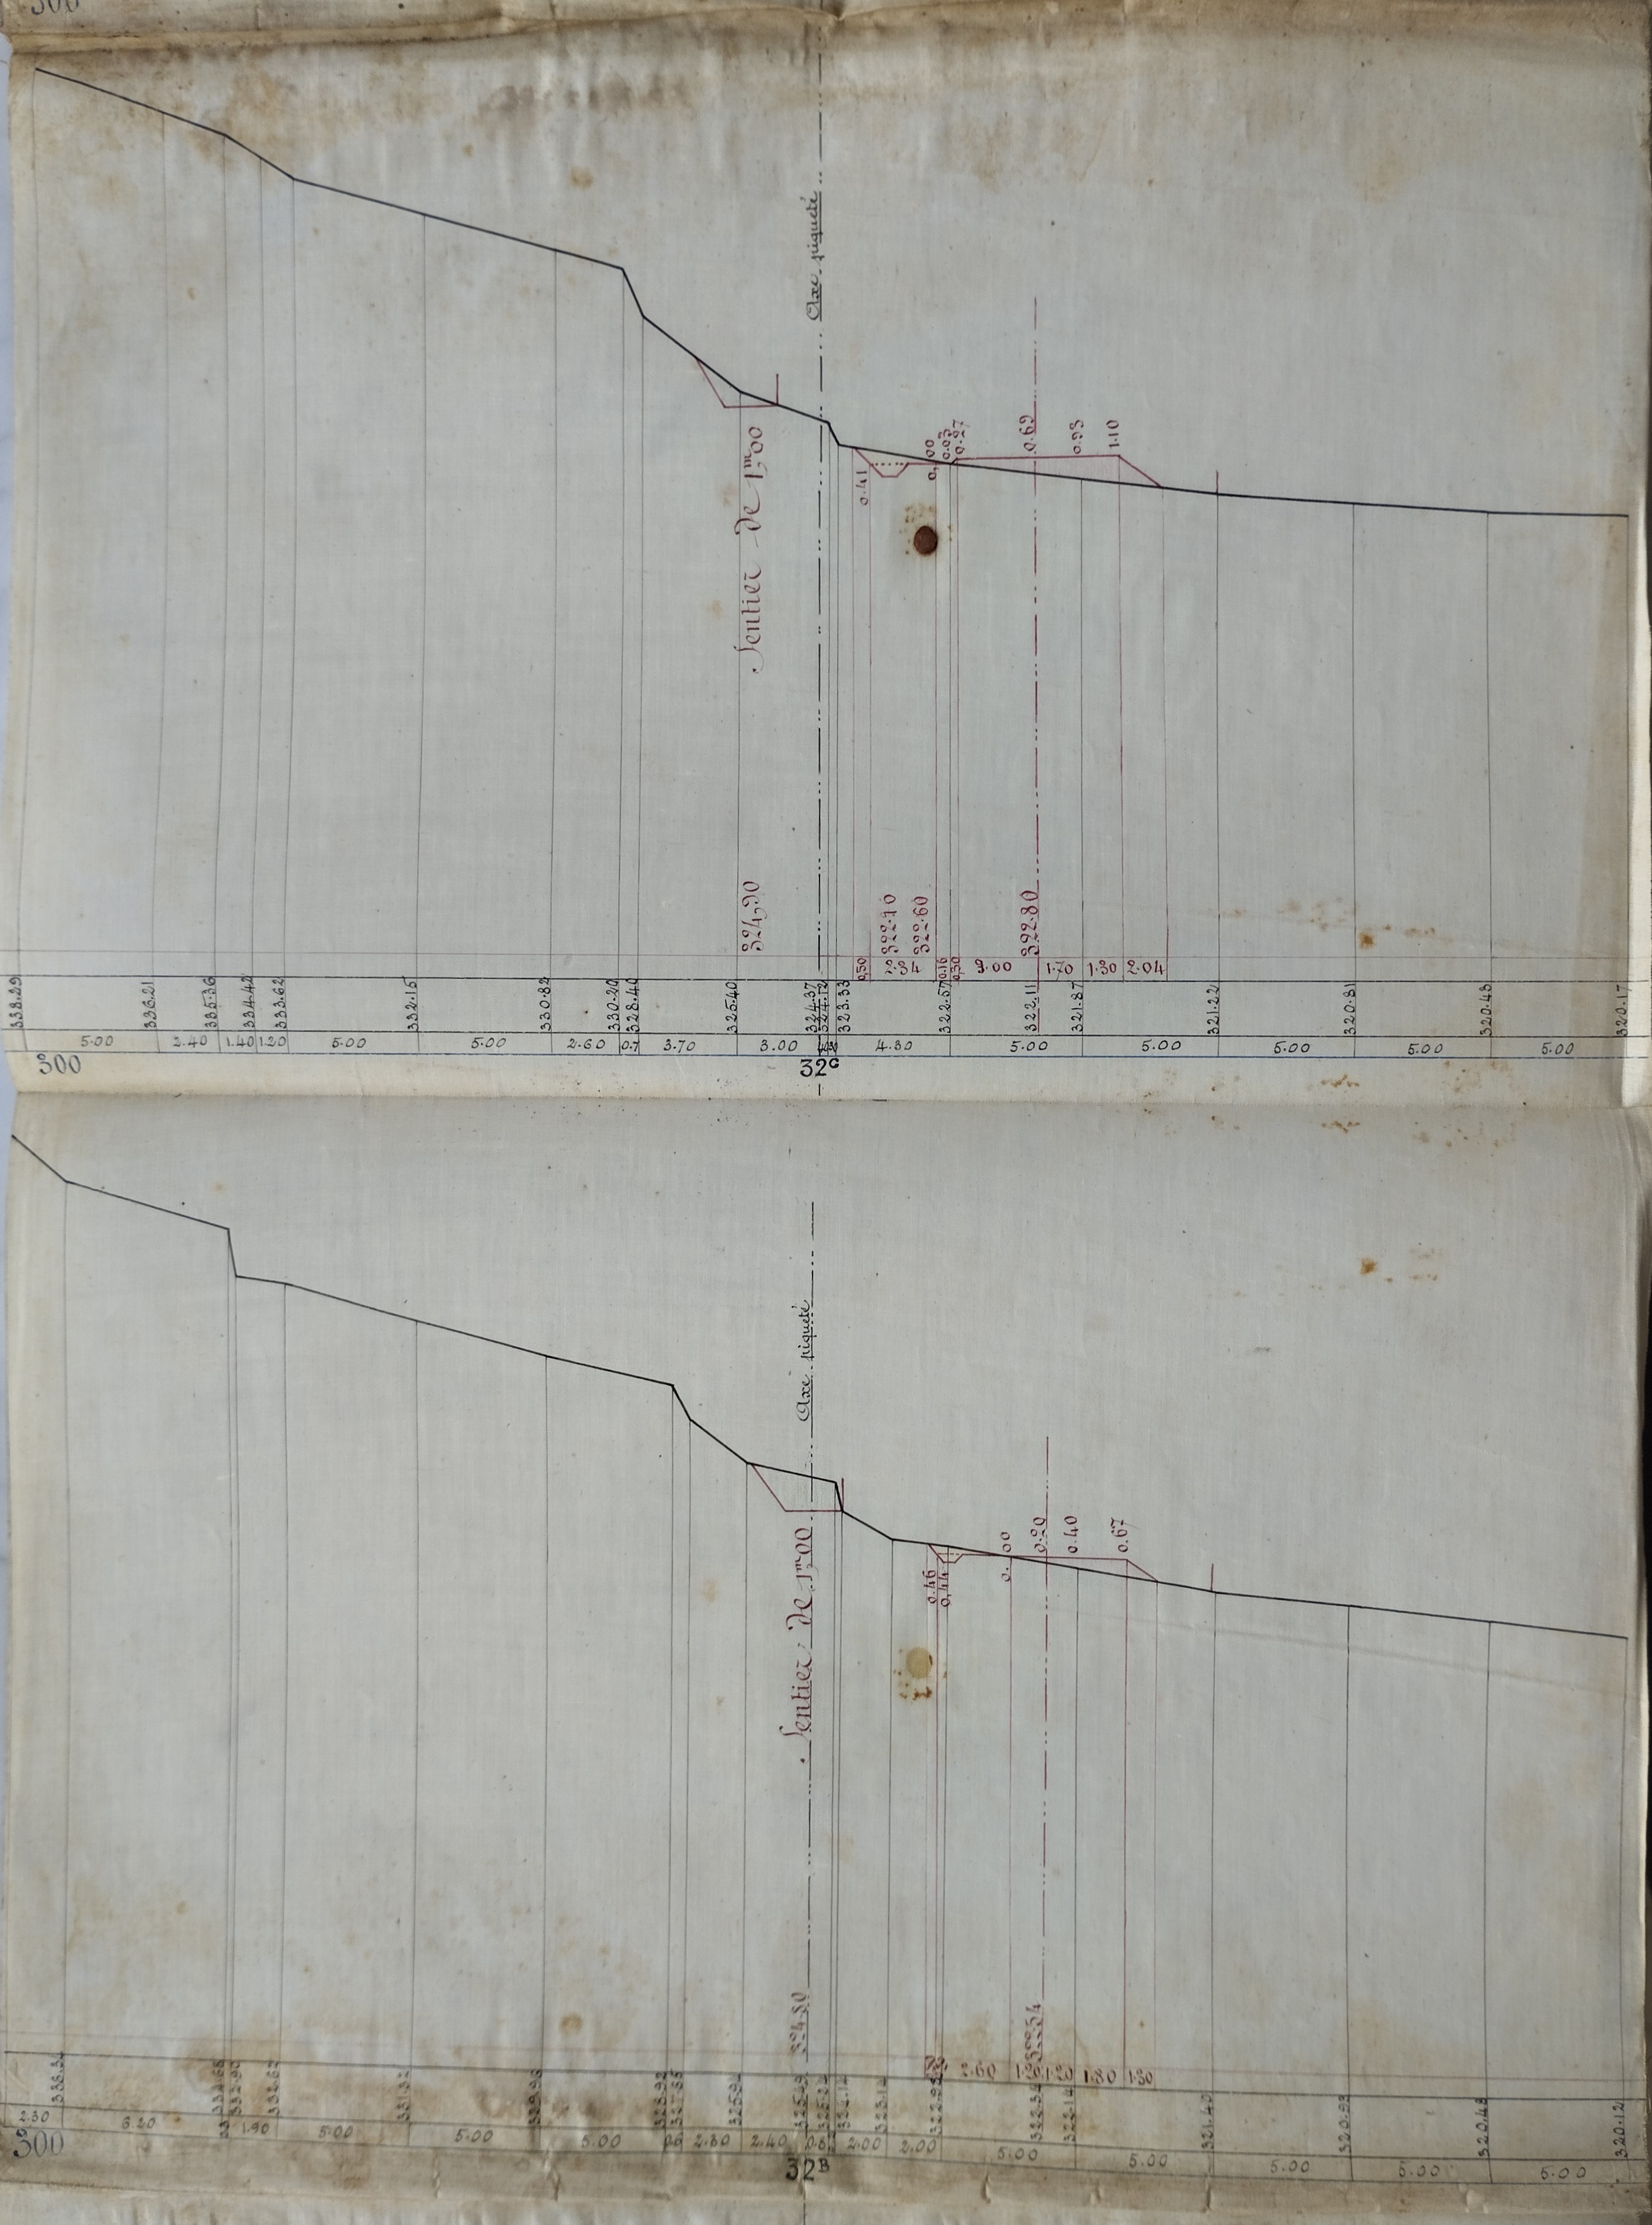 300
Axe piqueté
Sentier de 1,m00
0.41
0,00
0.03
0.27
0.69
0.93
1.10
324,90
322.10
322.60
322.80
0,50
2.34
0.16
0,30
3.00
1.70
1.30
2.04
338.29
336.21
335.36
334.42
333.62
332.15
330.82
330.20
328.40
325.40
324.37
324.12
323.33
322.57
322.11
321.87
321.22
320.81
320.43
320.17
5.00
2.40
1.40
1.20
5.00
5.00
2.60
0.7
3.70
3.00
4.30
5.00
5.00
5.00
5.00
5.00
300
32C
Axe piqueté
Sentier de 1,m00
0.46
0,44
0.00
0.20
0.40
0.67
324.80
322.54
2.60
1.20
1.80
1.30
336.34
332.90
332.62
329.93
322.34
322.14
321.40
320.93
320.43
320.12
2.30
6.20
1.90
5.00
5.00
5.00
2.80
2.40
2.00
2.00
5.00
5.00
5.00
5.00
5.00
300
32B